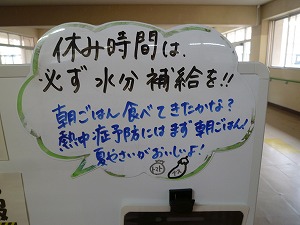 休み時間は
必ず水分補給を!!
朝ごはん食べてきたかな?
熱中症予防にはまず朝ごはん!
夏やさいがおいしいよ!
トマト
ナス